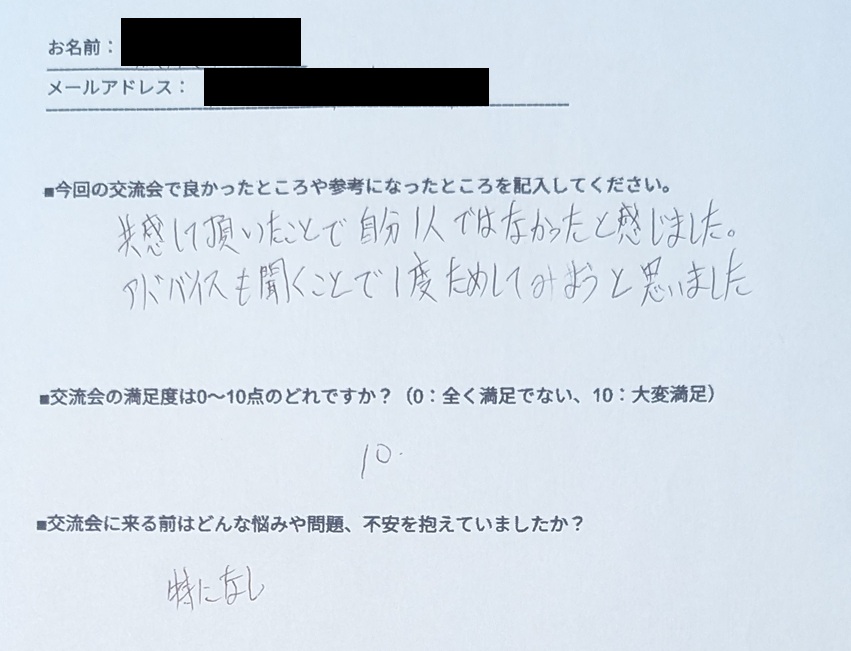 お名前：
メールアドレス：
■今回の交流会で良かったところや参考になったところを記入してください。
共感して頂いたことで自分1人ではなかったと感じました。
アドバイスも聞くことで1度ためしてみようと思いました
■交流会の満足度は0〜10点のどれですか？（0：全く満足でない、10：大変満足）
10.
■交流会に来る前はどんな悩みや問題、不安を抱えていましたか？
特になし